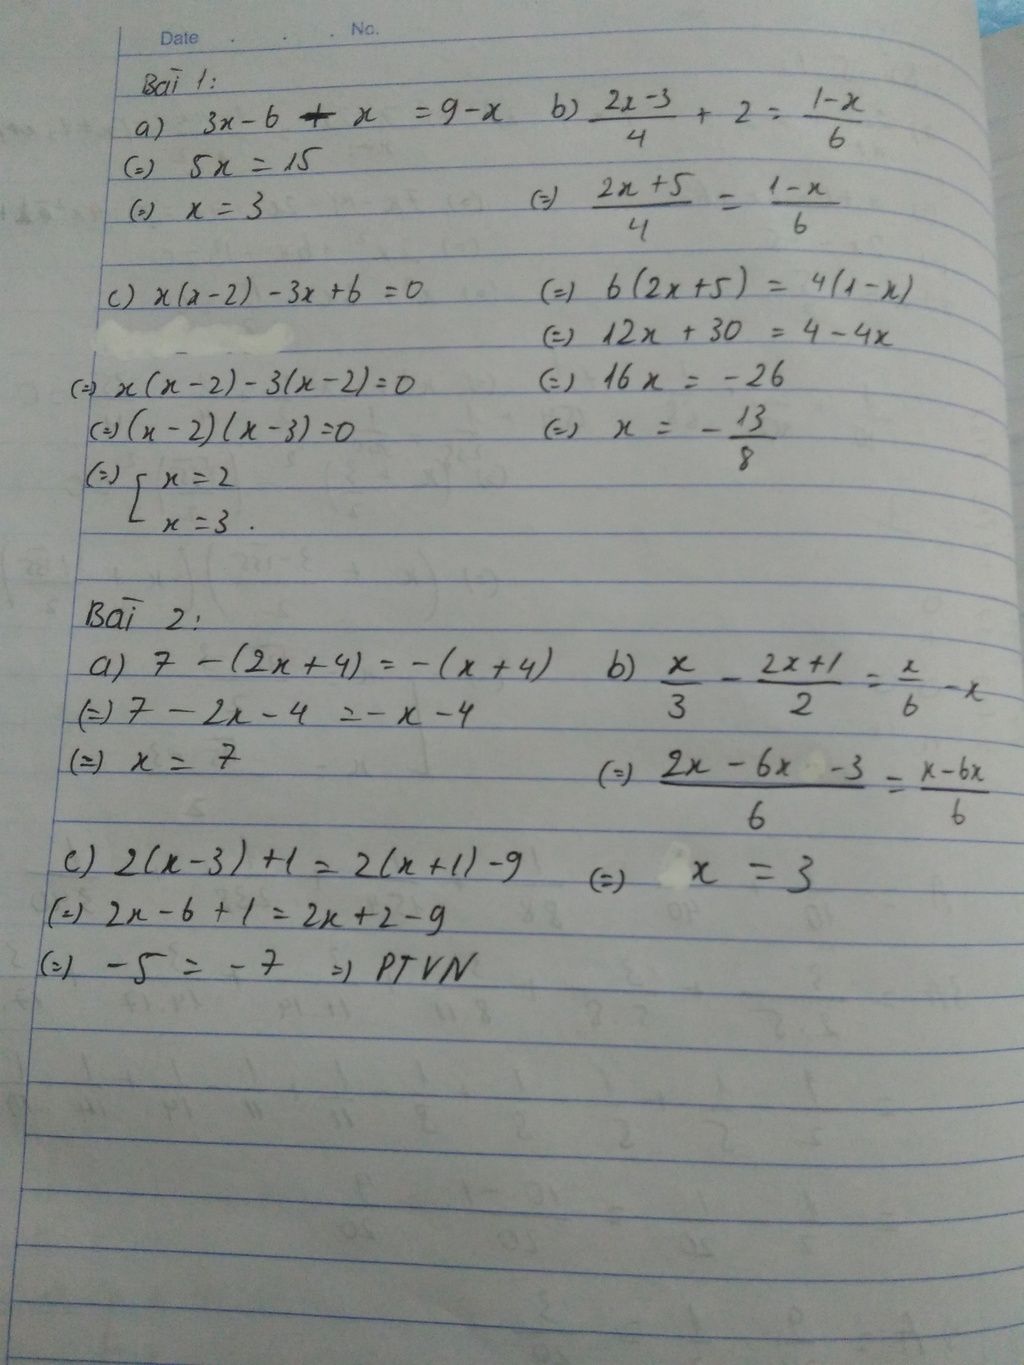 Date . . . No.
Bài 1:
a) 3x - 6 + x = 9 - x
(=) 5x = 15
(=) x = 3
b) (2x-3)/4 + 2 = (1-x)/6
(=) (2x+5)/4 = (1-x)/6
(=) 6(2x+5) = 4(1-x)
(=) 12x + 30 = 4 - 4x
(=) 16x = -26
(=) x = -13/8
c) x(x-2) - 3x + 6 = 0
(=) x(x-2) - 3(x-2) = 0
(=) (x-2)(x-3) = 0
(=) [ x = 2
x = 3 .
Bài 2:
a) 7 - (2x+4) = -(x+4)
(=) 7 - 2x - 4 = -x - 4
(=) x = 7
b) x/3 - (2x+1)/2 = x/6 - x
(=) (2x - 6x - 3)/6 = (x-6x)/6
(=) x = 3
c) 2(x-3) + 1 = 2(x+1) - 9
(=) 2x - 6 + 1 = 2x + 2 - 9
(=) -5 = -7 =) PTVN